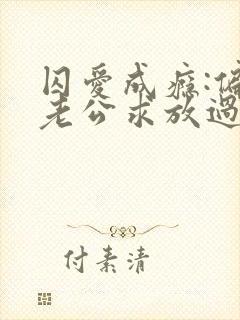 囚愛成癮:偏
老公求放過
付素清